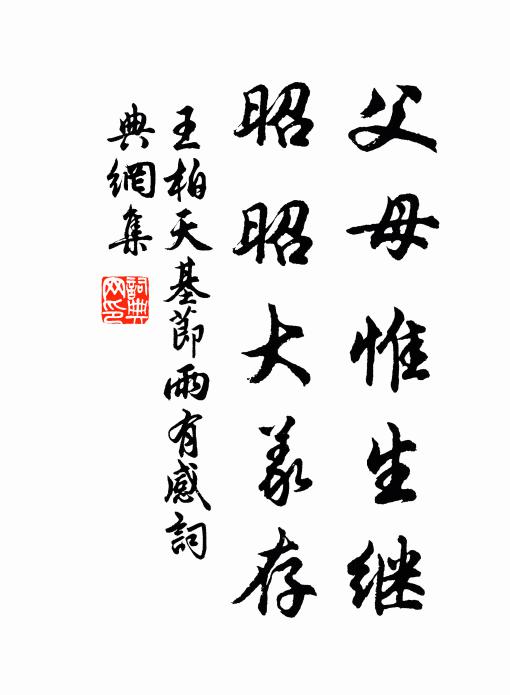 父母惟生继
昭昭大义存
王柏天基节雨有感詞
典網集
詞典网印